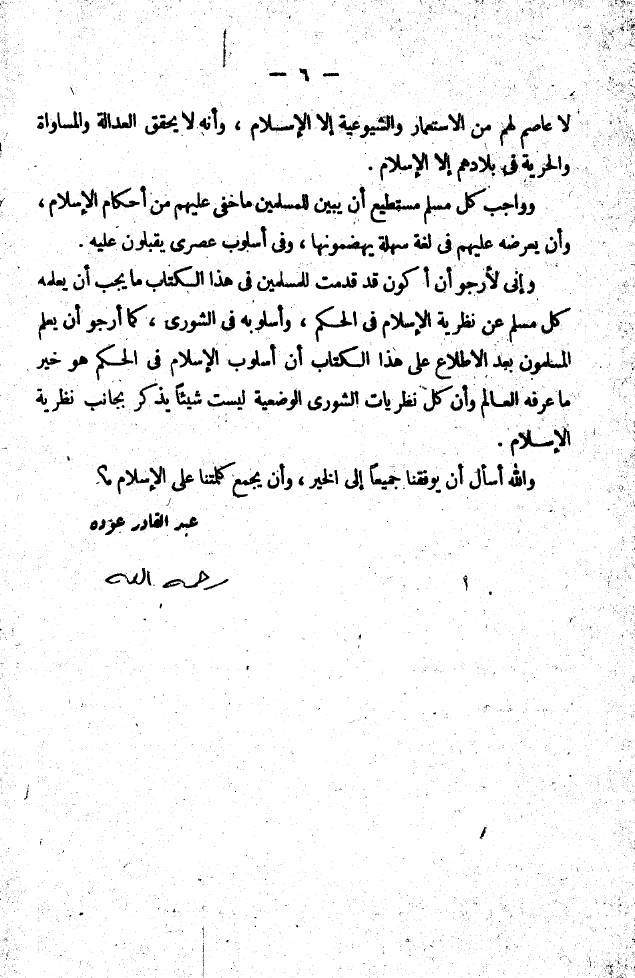 — ٦ —
لا عاصم لهم من الاستعمار والشيوعية إلا الإسـلام ، وأنه لا يحقق العدالة والمساواة
والحرية فى بلادهم إلا الإسلام .
وواجب كل مسلم مستطيع أن يبين للمسلمين ماخفى عليهم من أحكام الإسلام ،
وأن يعرضه عليهم فى لغة سهلة يهضمونها ، وفى أسلوب عصرى يقبلون عليه .
وإنى لأرجو أن أكون قد قدمت للمسلمين فى هذا الكتاب ما يجب أن يعلمه
كل مسلم عن نظرية الإسلام فى الحكم ، وأسلوبه فى الشورى ، كما أرجو أن يعلم
المسلمون بعد الاطلاع على هذا الكتاب أن أسلوب الإسلام فى الحكم هو خير
ما عرفه العـالم وأن كل نظريات الشورى الوضعية ليست شيئاً يذكر بجانب نظرية
الإسـلام .
والله أسأل أن يوفقنا جميعاً إلى الخير ، وأن يجمع كلمتنا على الإسلام
عبد القادر عوده
رحمه الله